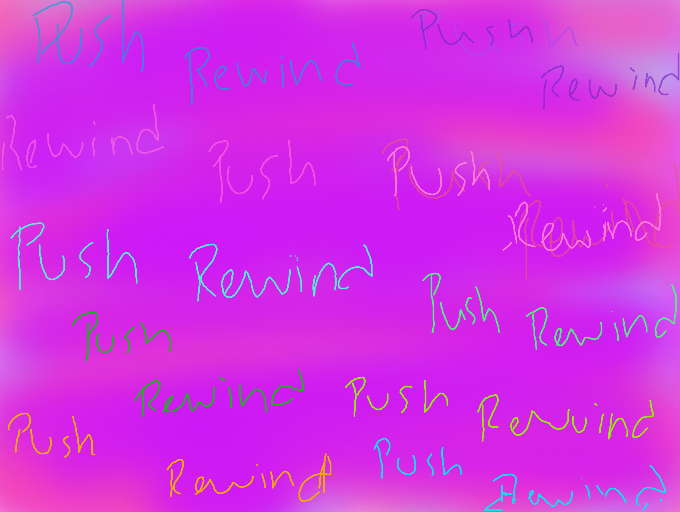 Push Rewind Pushn Rewind
Rewind Push Push Rewind
Push Rewind Push Rewind
Push Rewind Push Rewind
Push Rewind Push Rewind